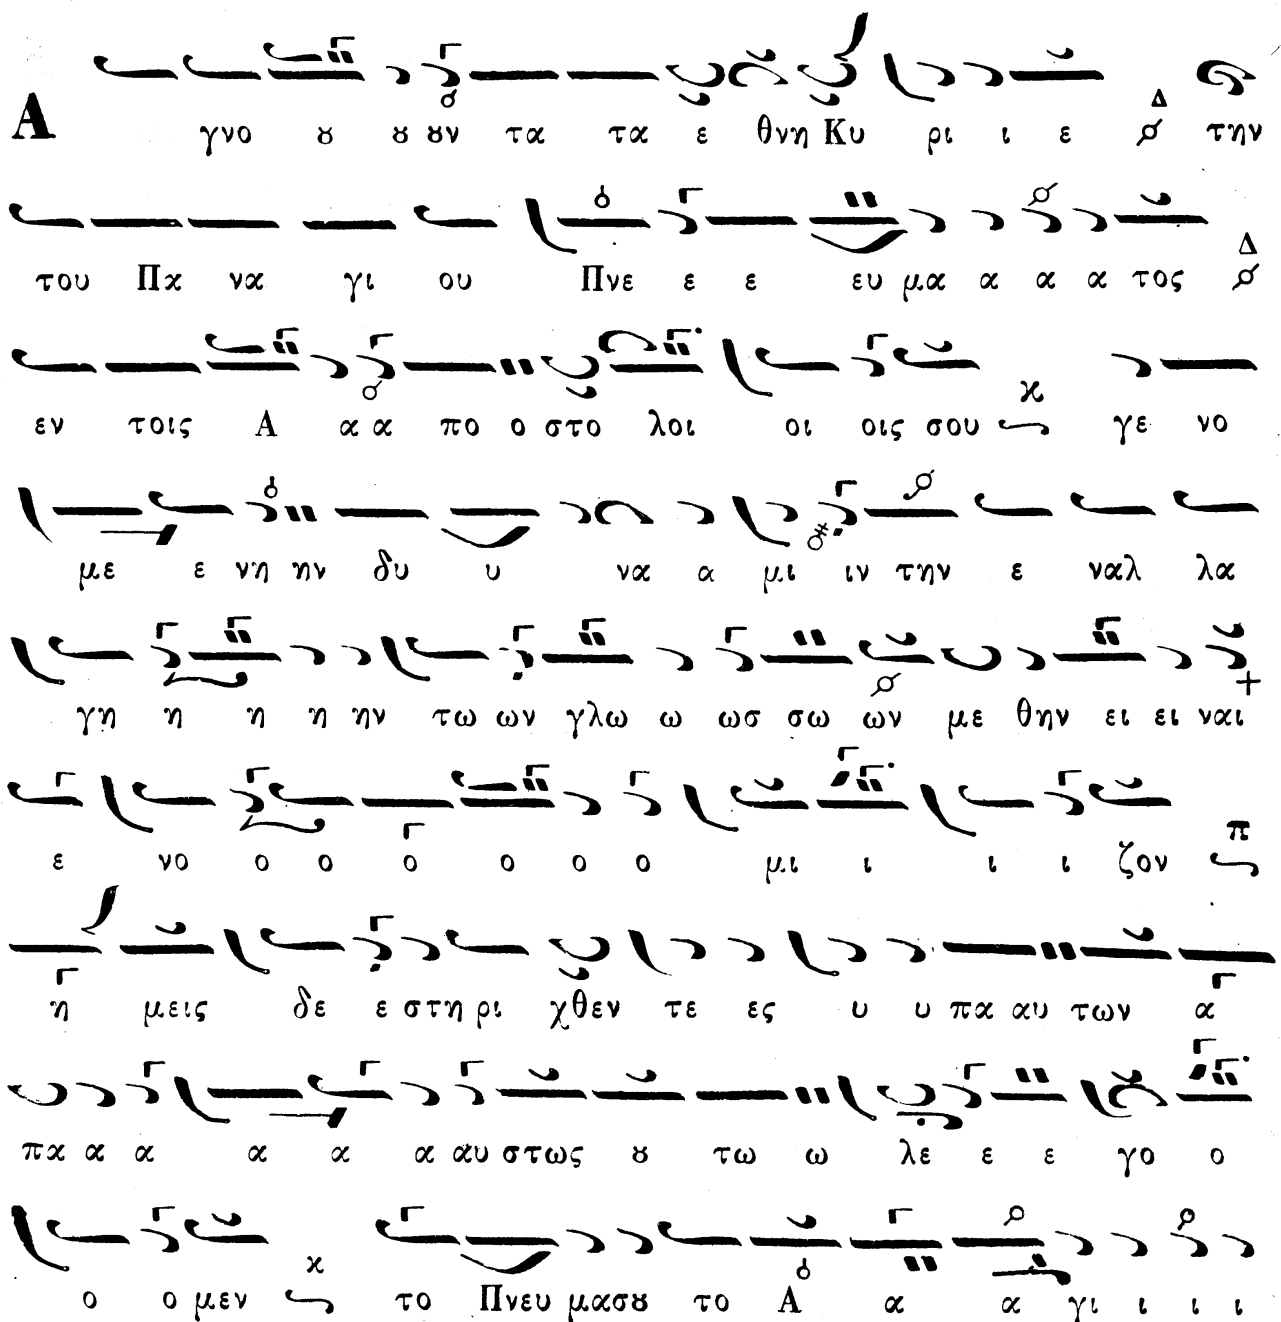 Α γνο ȣ ȣ ȣν τα τα ε θνη Κυ ρι ι ε Δ την
του Πα να γι ου Πνε ε ε ευ μα α α α τος Δ
εν τοις Α α α πο ο στο λοι οι οις σου κ γε νο
με ε νη ην δυ υ να α μι ιν την ε ναλ λα
γη η η η ην τω ων γλω ω ωσ σω ων με θην ει ει ναι
ε νο ο ο ο ο ο ο μι ι ι ι ζον π
η μεις δε ε στη ρι χθεν τε ες υ υ πα αυ των α
πα α α α α α αυ στως ȣ τω ω λε ε ε γο ο
ο ο μεν κ το Πνευ μασȣ το Α α α γι ι ι ι